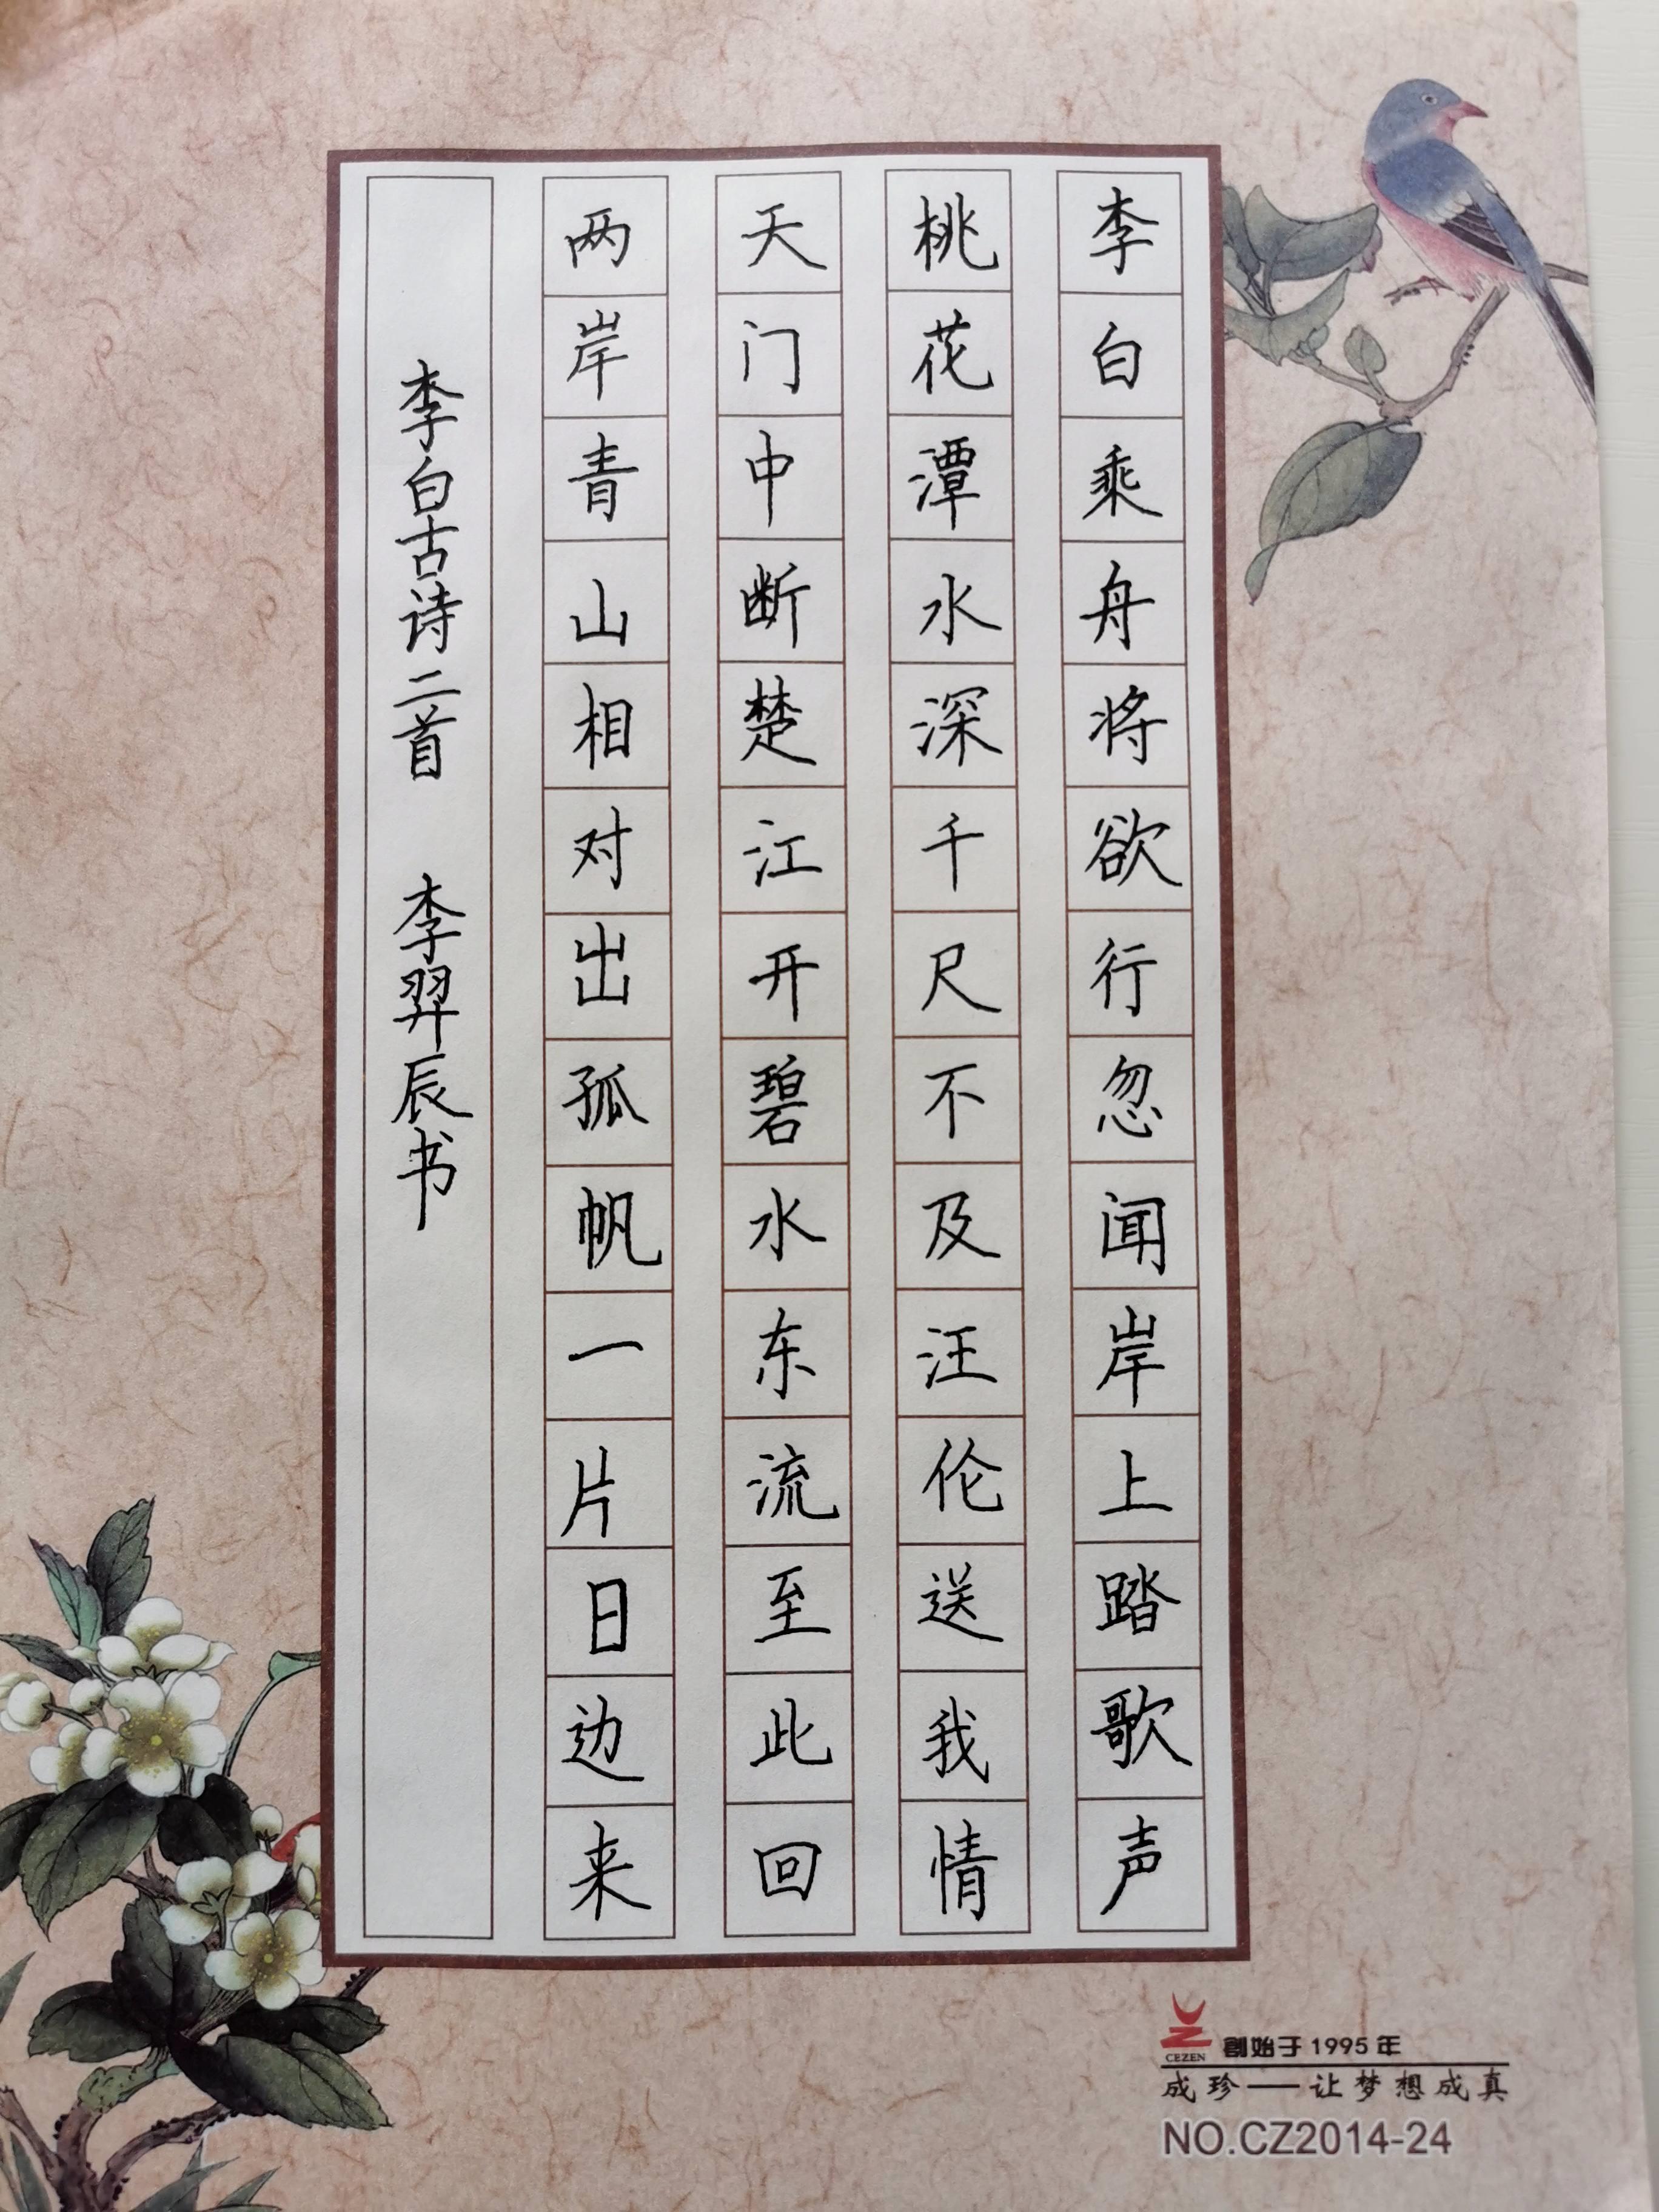 李白乘舟将欲行忽闻岸上踏歌声
桃花潭水深千尺不及汪伦送我情
天门中断楚江开碧水东流至此回
两岸青山相对出孤帆一片日边来
李白古诗二首 李羿辰书
CEZEN
創始于1995年
成珍——让梦想成真
NO.CZ2014-24